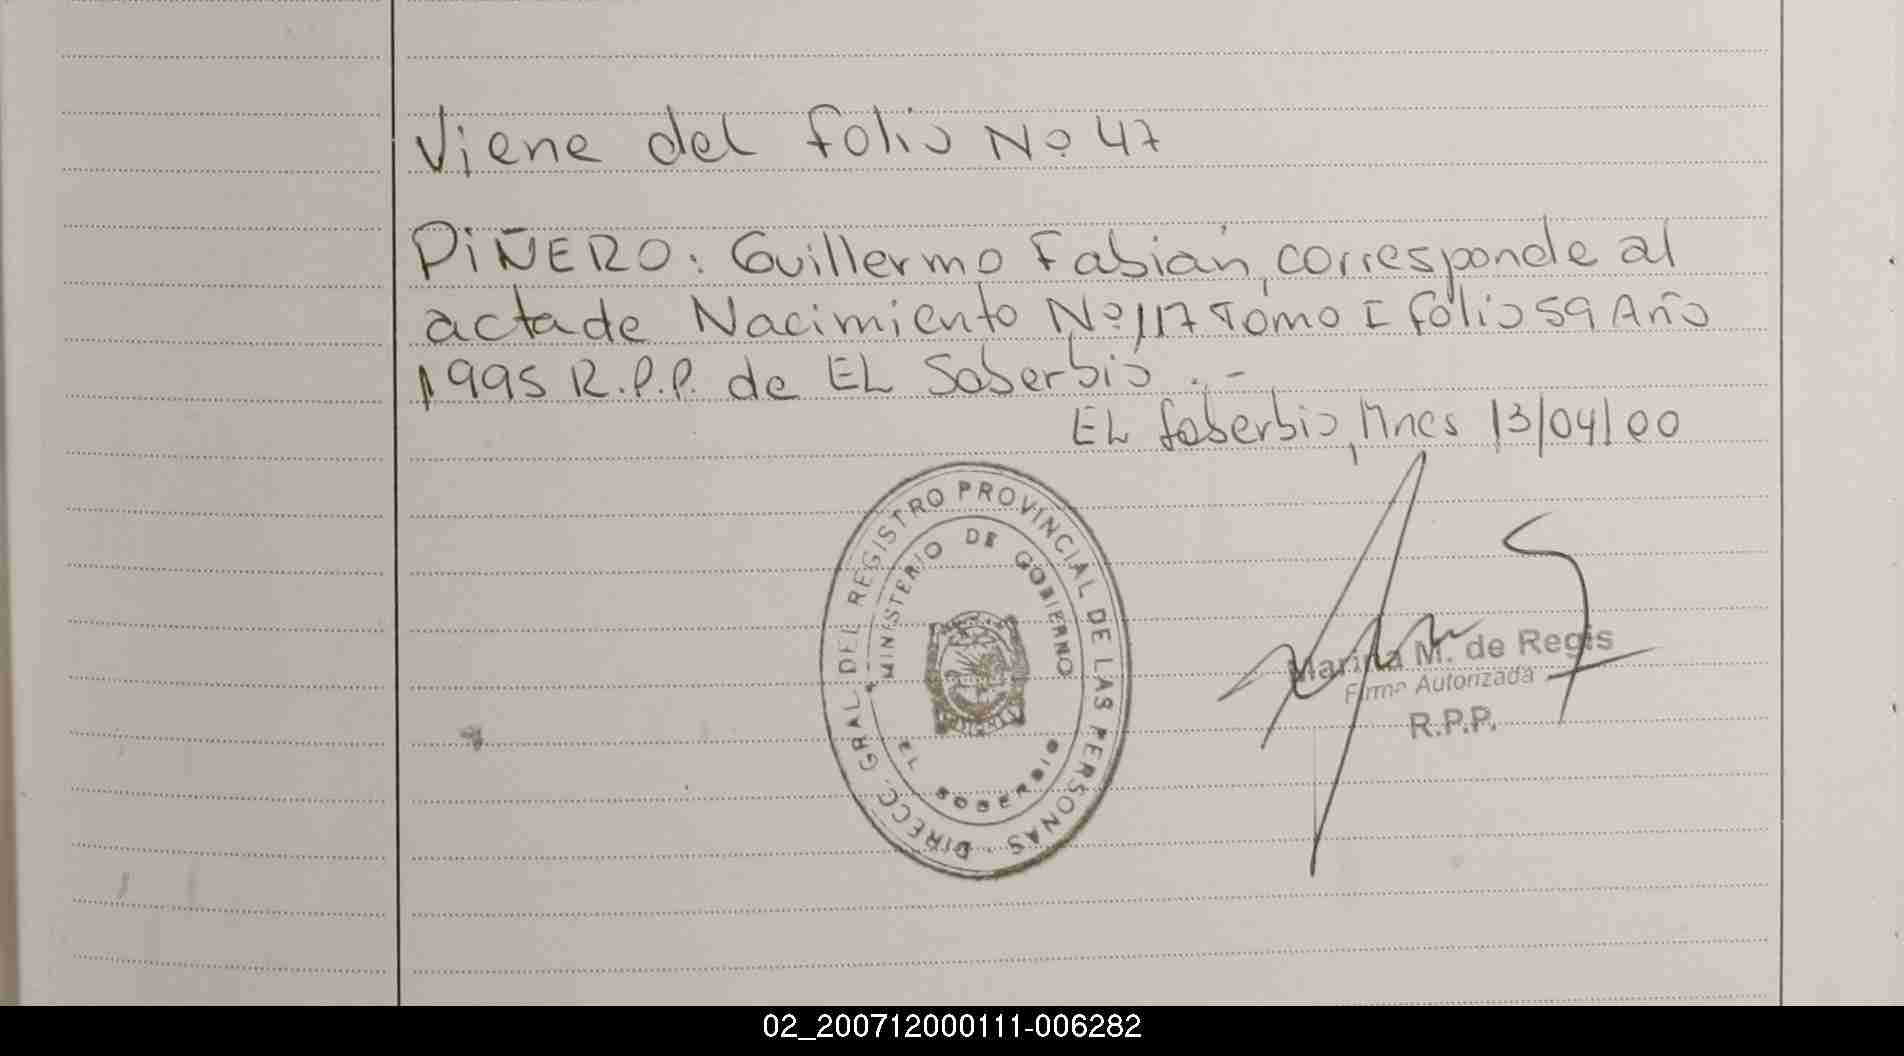 Viene del folio Nº 47
PIÑERO: Guillermo Fabián, corresponde al
acta de Nacimiento Nº 117 Tomo I folio 59 Año
1995 R.P.P. de EL Soberbio.-
EL Soberbio, Mnes 13/04/00
DIRECC. GRAL. DEL REGISTRO PROVINCIAL DE LAS PERSONAS
MINISTERIO DE GOBIERNO
EL SOBERBIO
Marina M. de Regis
Firma Autorizada
R.P.P.
02_200712000111-006282